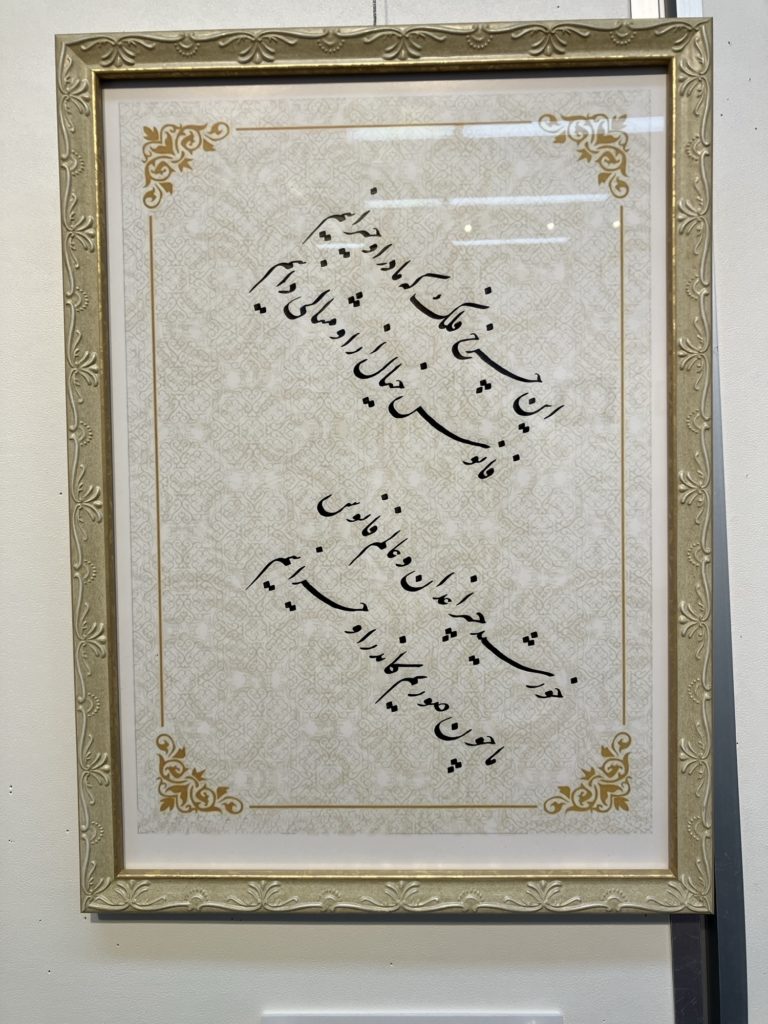 این چرخ فلک که ما در او حیرانیم
فانوس خیال از او مثالی دانیم
خورشید چراغدان و عالم فانوس
ما چون صوریم کاندر او حیرانیم